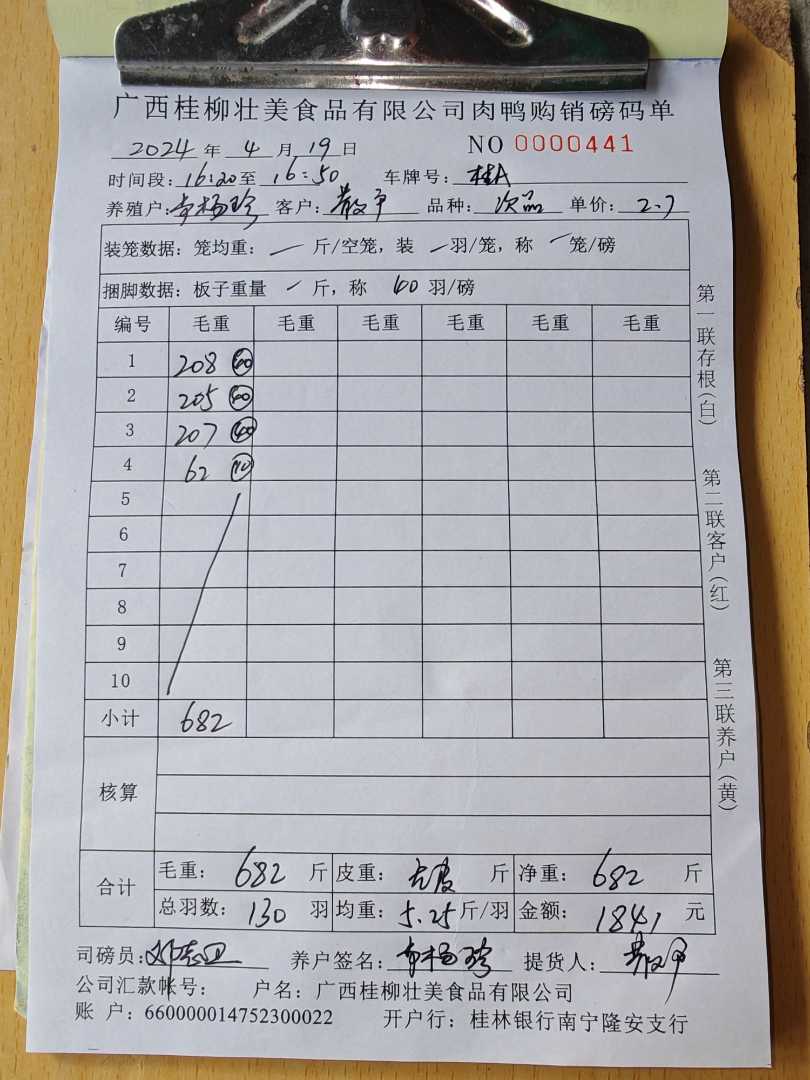 广西桂柳壮美食品有限公司肉鸭购销磅码单
2024 年 4 月 19 日 NO 0000441
时间段：16:20 至 16:50 车牌号：桂A
养殖户： 客户：散户 品种：次品 单价：2.7
装笼数据：笼均重：一 斤/空笼，装 一 羽/笼，称 一 笼/磅
捆脚数据：板子重量 一 斤，称 40 羽/磅
编号 毛重 毛重 毛重 毛重 毛重 毛重
1 208 40
2 205 40
3 207 40
4 62 10
5
6
7
8
9
10
小计 682
核算
合计 毛重：682 斤 皮重： 斤 净重：682 斤
总羽数：130 羽 均重：5.25 斤/羽 金额：1841 元
司磅员： 养户签名： 提货人：散户
公司汇款帐号： 户名：广西桂柳壮美食品有限公司
账 户：660000014752300022 开户行：桂林银行南宁隆安支行
第一联存根（白）
第二联客户（红）
第三联养户（黄）